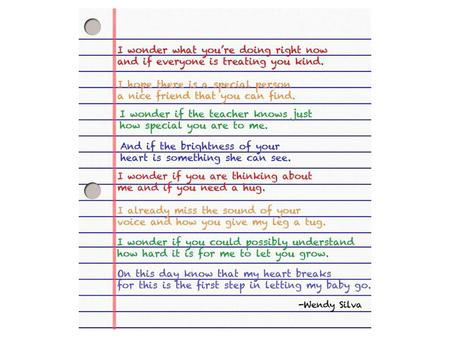 I wonder what you're doing right now
and if everyone is treating you kind.
I hope there is a special person
a nice friend that you can find.
I wonder if the teacher knows just
how special you are to me.
And if the brightness of your
heart is something she can see.
I wonder if you are thinking about
me and if you need a hug.
I already miss the sound of your
voice and how you give my leg a tug.
I wonder if you could possibly understand
how hard it is for me to let you grow.
On this day know that my heart breaks
for this is the first step in letting my baby go.
-Wendy Silva